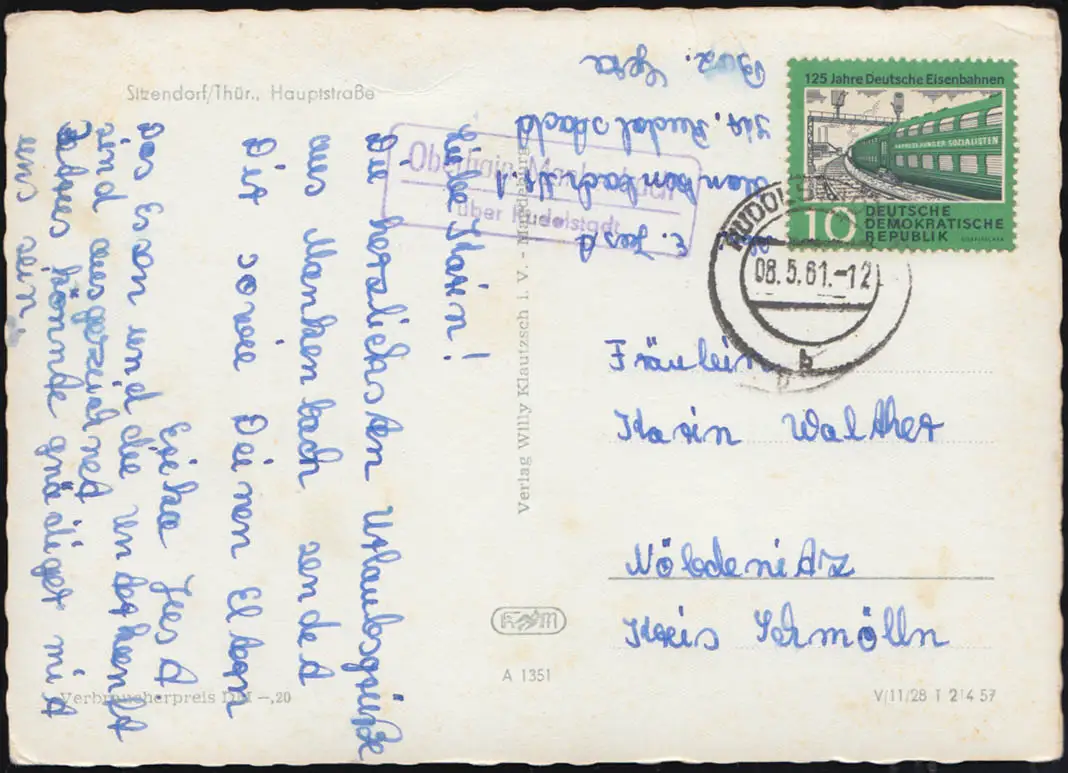 Sitzendorf/Thür., Hauptstraße
Liebe Karin!
Die herzlichsten Urlaubsgrüße
aus Mankenbach sendet
Dir sowie Deinen Eltern
Erika Jest
Das Essen und die Unterkunft
sind ausgezeichnet
Petrus könnte gnädiger mit
uns sein
Verbraucherpreis DM –,20
Verlag Willy Klautzsch i. V. - Magdeburg
A 1351
E. Jest
Mankenbach Nr. 1
Kr. Rudolstadt
Bez. Gera
Oberhain-Mankenbach
über Rudolstadt
125 Jahre Deutsche Eisenbahnen
EXPRESS JUNGER SOZIALISTEN
10
DEUTSCHE
DEMOKRATISCHE
REPUBLIK
RUDOLSTADT
08.5.61.-12
b
Fräulein
Karin Walther
Nöbdenitz
Kreis Schmölln
V/11/28 1 214 57